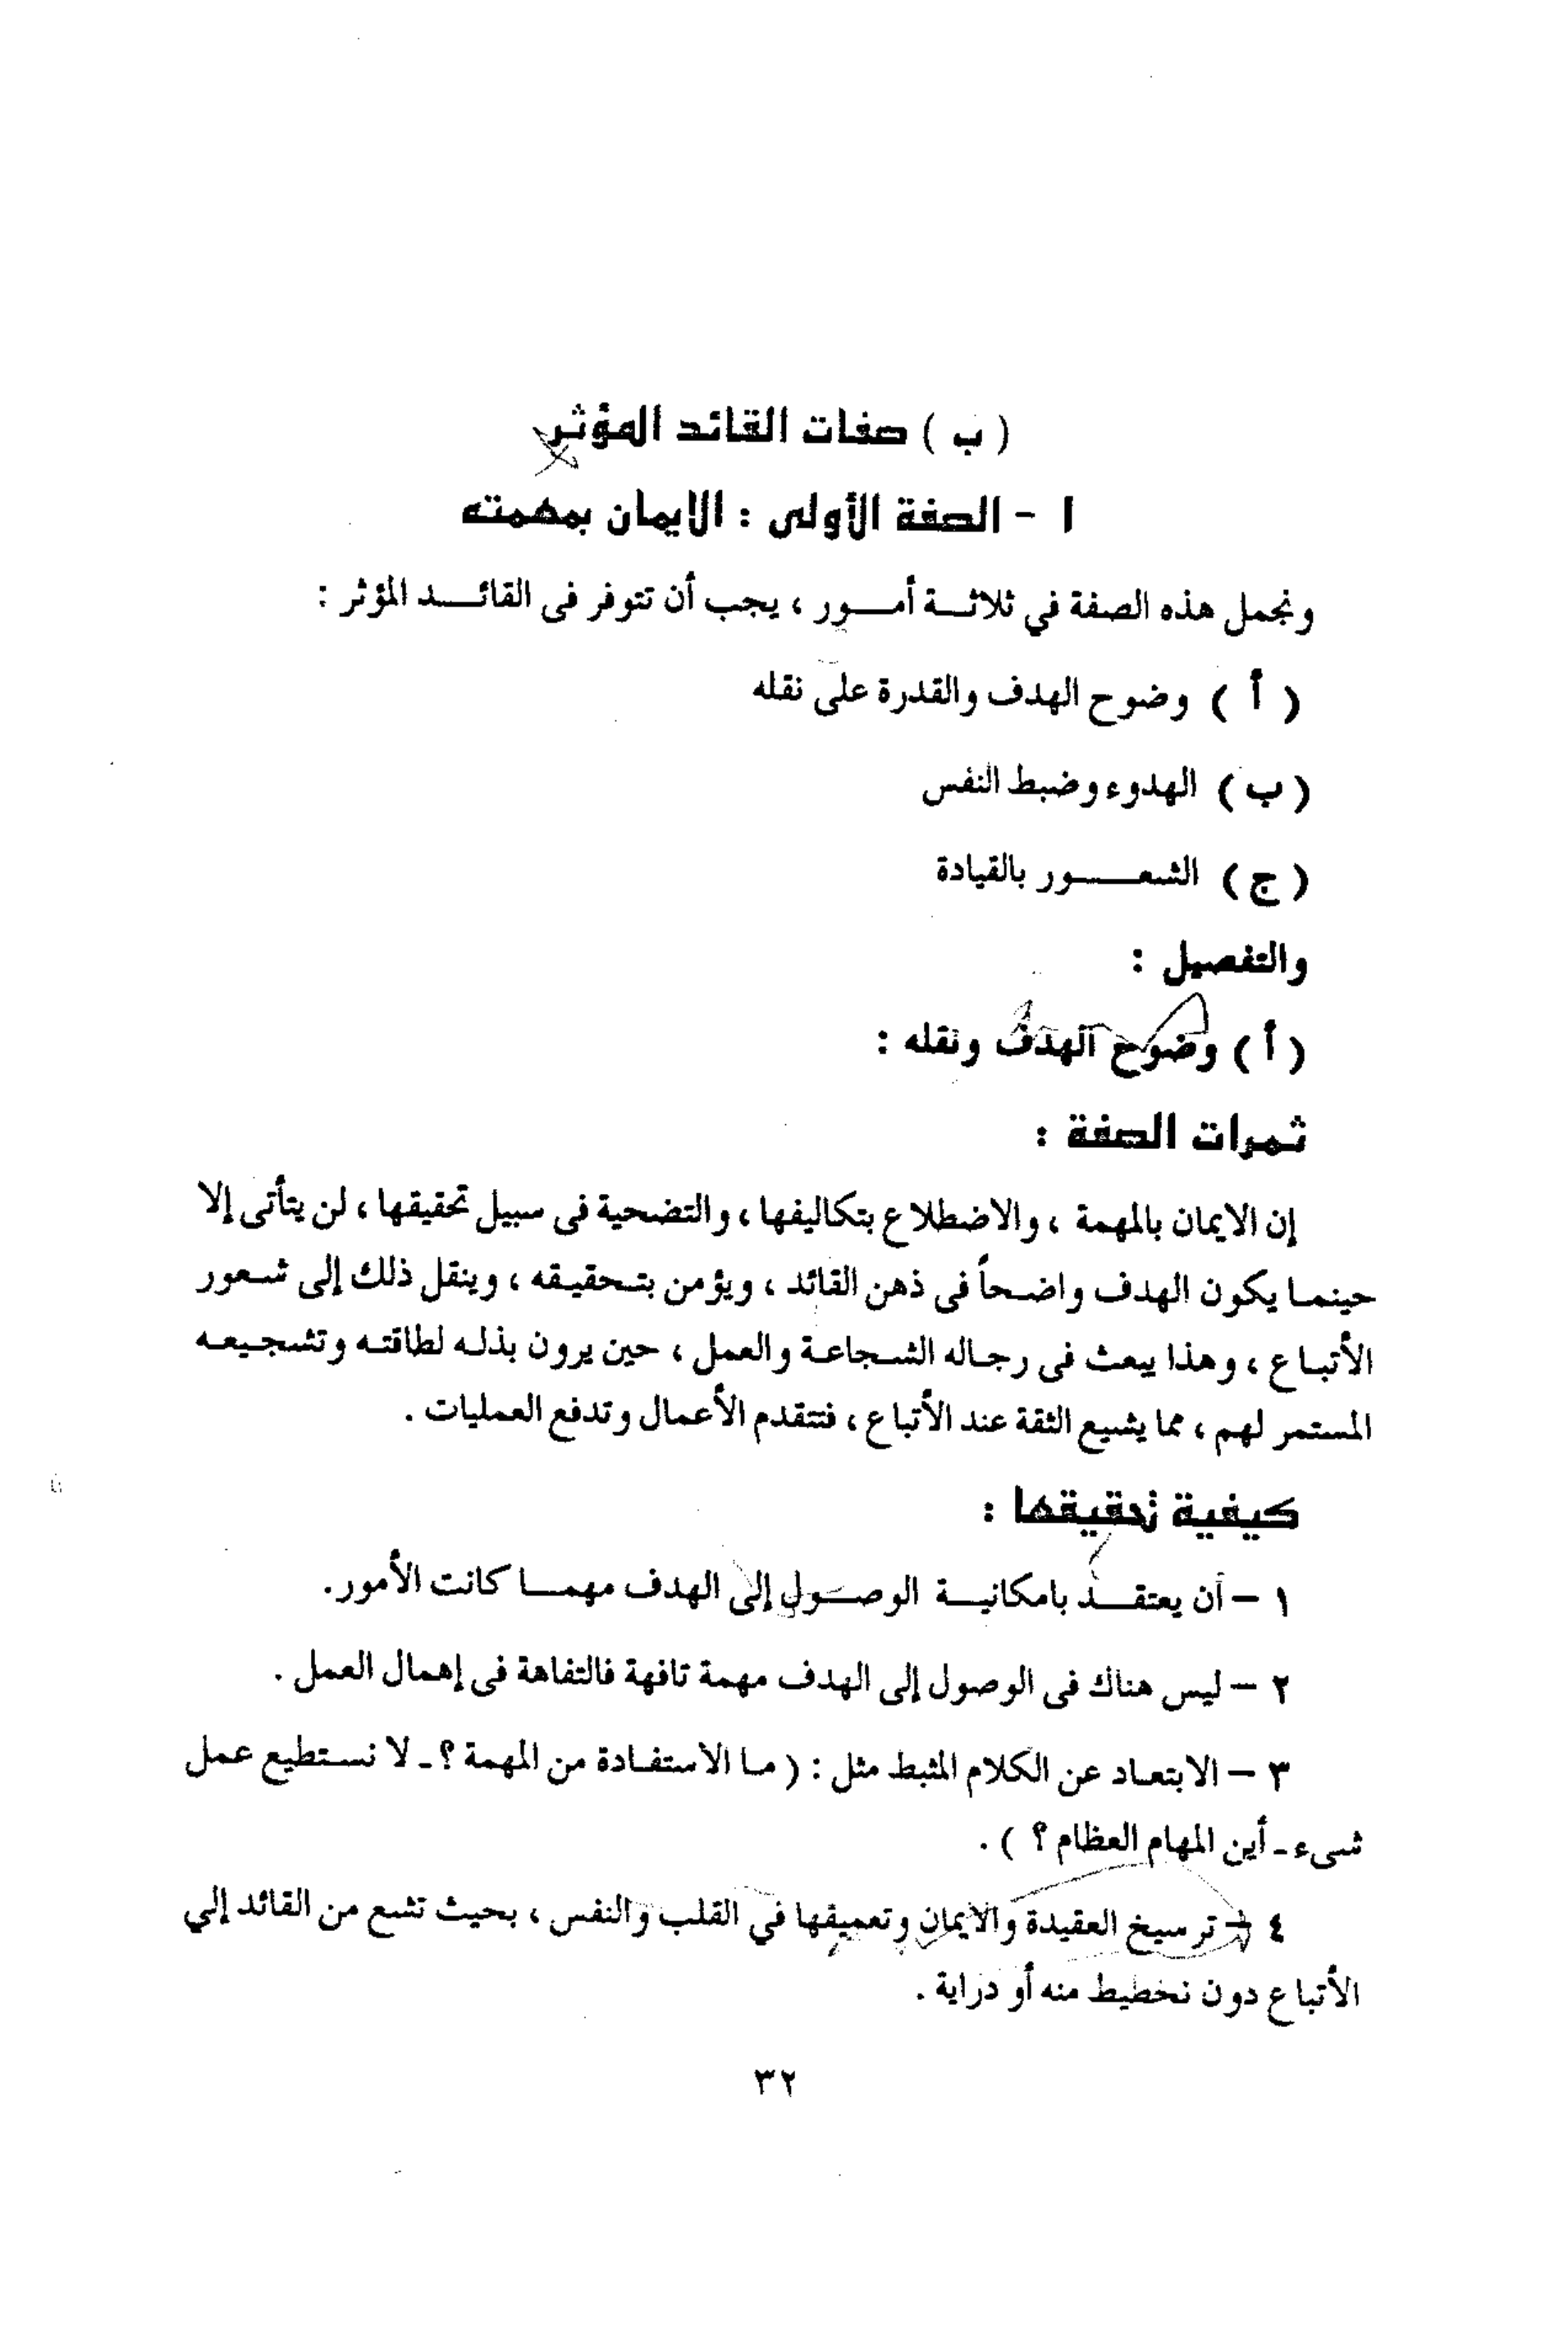 ( ب ) صفات القائد المؤثر
١ - الصفة الأولى : الايمان بمهمته
ونجمل هذه الصفة في ثلاثة أمور ، يجب أن تتوفر فى القائد المؤثر :
( أ ) وضوح الهدف والقدرة على نقله
( ب ) الهدوء وضبط النفس
( ج ) الشعور بالقيادة
والتفصيل :
( أ ) وضوح الهدف ونقله :
ثمرات الصفة :
إن الايمان بالمهمة ، والاضطلاع بتكاليفها ، والتضحية فى سبيل تحقيقها ، لن يتأتى إلا
حينما يكون الهدف واضحاً فى ذهن القائد ، ويؤمن بتحقيقه ، وينقل ذلك إلى شعور
الأتباع ، وهذا يبعث فى رجاله الشجاعة والعمل ، حين يرون بذله لطاقته وتشجيعه
المستمر لهم ، مما يشيع الثقة عند الأتباع ، فتتقدم الأعمال وتدفع العمليات .
كيفية تحقيقها :
١ – أن يعتقد بامكانية الوصول إلى الهدف مهما كانت الأمور.
٢ – ليس هناك فى الوصول إلى الهدف مهمة تافهة فالتفاهة فى إهمال العمل .
٣ – الابتعاد عن الكلام المثبط مثل : ( ما الاستفادة من المهمة ؟ ـ لا نستطيع عمل
شىء ـ أين المهام العظام ؟ ) .
٤ – ترسيخ العقيدة والايمان وتعميقها في القلب والنفس ، بحيث تشع من القائد إلي
الأتباع دون تخطيط منه أو دراية .
٣٢